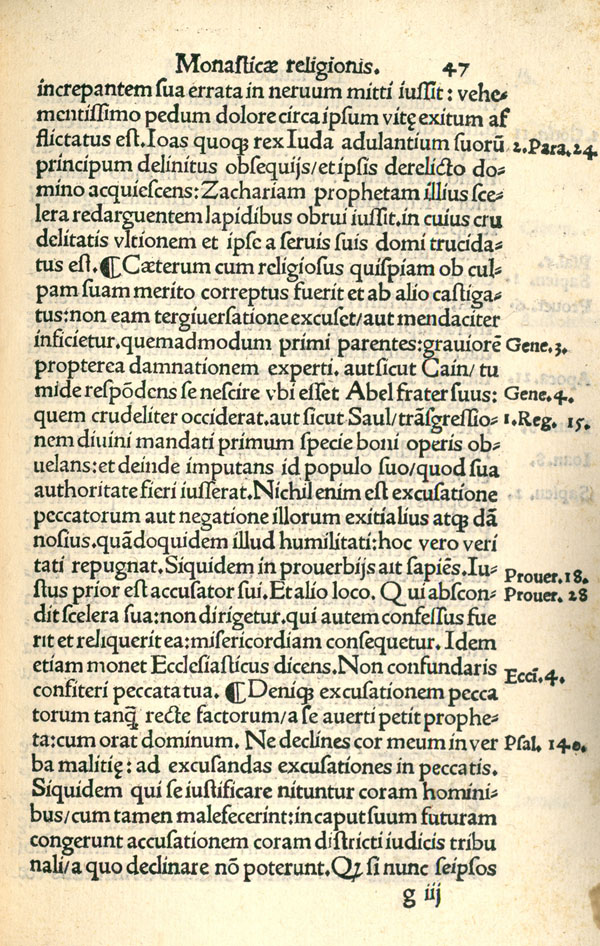 Monasticæ religionis. 47
increpantem sua errata in neruum mitti iussit: vehe=
mentissimo pedum dolore circa ipsum vitę exitum af
flictatus est. Ioas quoqꝫ rex Iuda adulantium suorū 2. Para. 24.
principum delinitus obsequijs/et ipsis derelicto do=
mino acquiescens: Zachariam prophetam illius sce=
lera redarguentem lapidibus obrui iussit. in cuius cru
delitatis vltionem et ipse a seruis suis domi trucida=
tus est. ¶ Cæterum cum religiosus quispiam ob cul=
pam suam merito correptus fuerit et ab alio castiga=
tus: non eam tergiuersatione excuset/aut mendaciter
inficietur. quemadmodum primi parentes: grauiorē Gene. 3.
propterea damnationem experti. aut sicut Cain/ tu
mide respōdens se nescire vbi esset Abel frater suus: Gene. 4.
quem crudeliter occiderat. aut sicut Saul/ trāsgressio= 1. Reg. 15.
nem diuini mandati primum specie boni operis ob=
uelans: et deinde imputans id populo suo/quod sua
authoritate fieri iusserat. Nichil enim est excusatione
peccatorum aut negatione illorum exitialius atqꝫ dā
nosius. quādoquidem illud humilitati: hoc vero veri
tati repugnat. Siquidem in prouerbijs ait sapiēs. Iu= Prouer. 18.
stus prior est accusator sui. Et alio loco. Qui abscon= Prouer. 28
dit scelera sua: non dirigetur. qui autem confessus fue
rit et reliquerit ea: misericordiam consequetur. Idem
etiam monet Ecclesiasticus dicens. Non confundaris Ecci. 4.
confiteri peccata tua. ¶ Deniqꝫ excusationem pecca
torum tanqꝫ̄ recte factorum/a se auerti petit prophe=
ta: cum orat dominum. Ne declines cor meum in ver Psal. 140.
ba malitię: ad excusandas excusationes in peccatis.
Siquidem qui se iustificare nituntur coram homini=
bus/cum tamen malefecerint: in caput suum futuram
congerunt accusationem coram districti iudicis tribu
nali/a quo declinare nō poterunt. Qꝫ si nunc seipsos
g iij